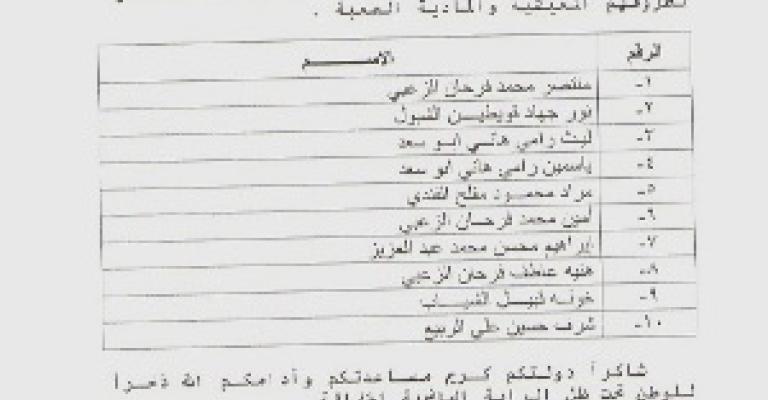 لظروفهم المعيشية والمادية الصعبة .
الرقم الاســـــم
١- منتصر محمد فرحان الزعبي
٢- نور جهاد قويطيـن الشبول
٣- ليث رامي هانـي ابو سعد
٤- ياسمين رامي هاني ابو سعد
٥- مراد محمــود مفلح
٦- أمين محمد فرحـان الزعبي
٧- إبراهيم محسن محمد عبد العزيز
٨- هنيه عاطف فرحان الزعبي
٩- خولـه نبيـل الشيـاب
١٠- شرف حسين علي الربيع
شاكراً دولتكم كرم مساعدتكم وأدامكم الله ذخراً
للوطن تحت ظل الراية الهاشمية الخفاقة